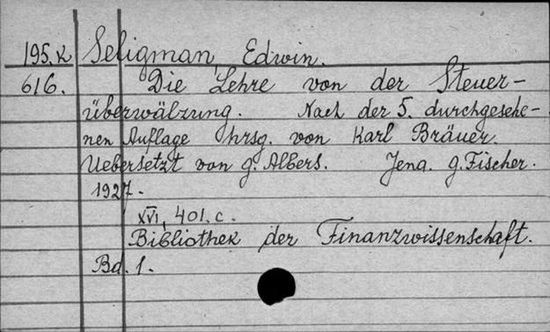 195.K Seligman, Edwin.
616. Die Lehre von der Steuer-
überwälzung. Nach der 5. durchgesehe-
nen Auflage hrsg. von Karl Bräuer.
Uebersetzt von G. Albers. Jena. G. Fischer.
1927.
XVI, 401. c.
Bibliothek der Finanzwissenschaft.
Bd. 1.